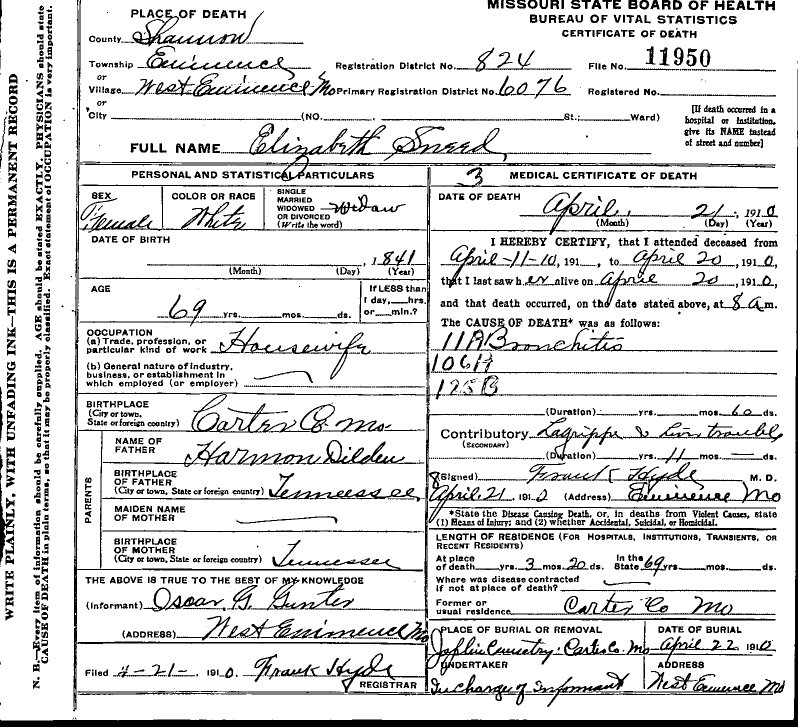 MISSOURI STATE BOARD OF HEALTH
BUREAU OF VITAL STATISTICS
CERTIFICATE OF DEATH
PLACE OF DEATH
County Shannon
Township Eminence
or
Village West Eminence Mo
or
City (NO. St.; Ward)
Registration District No. 824 File No. 11950
Primary Registration District No. 6076 Registered No.
[If death occurred in a
hospital or institution,
give its NAME instead
of street and number]
FULL NAME Elizabeth Sneed
PERSONAL AND STATISTICAL PARTICULARS
SEX
Female
COLOR OR RACE
White
SINGLE
MARRIED
WIDOWED
OR DIVORCED
(Write the word)
Widow
DATE OF BIRTH
, 1841
(Month) (Day) (Year)
AGE
69 yrs. mos. ds.
If LESS than
1 day, hrs.
or min.?
OCCUPATION
(a) Trade, profession, or
particular kind of work Housewife
(b) General nature of industry,
business, or establishment in
which employed (or employer)
BIRTHPLACE
(City or town,
State or foreign country) Carter Co Mo
PARENTS
NAME OF
FATHER Harmon Dilden
BIRTHPLACE
OF FATHER
(City or town, State or foreign country) Tennessee
MAIDEN NAME
OF MOTHER
BIRTHPLACE
OF MOTHER
(City or town, State or foreign country) Tennessee
THE ABOVE IS TRUE TO THE BEST OF MY KNOWLEDGE
(Informant) Oscar G. Gunter
(ADDRESS) West Eminence Mo
Filed 4-21- 1910. Frank Hyde
REGISTRAR
3 MEDICAL CERTIFICATE OF DEATH
DATE OF DEATH
April 21, 1910
(Month) (Day) (Year)
I HEREBY CERTIFY, that I attended deceased from
April-11-10, 191 , to April 20, 1910,
that I last saw her alive on April 20, 1910,
and that death occurred, on the date stated above, at 8 a m.
The CAUSE OF DEATH* was as follows:
11A Bronchitis
106A
125B
(Duration) yrs. mos. 60 ds.
Contributory Lagrippe & Liver trouble
(SECONDARY)
(Duration) yrs. 11 mos. ds.
(Signed) Frank Hyde M. D.
April 21 1910 (Address) Eminence Mo
*State the Disease Causing Death, or, in deaths from Violent Causes, state
(1) Means of Injury; and (2) whether Accidental, Suicidal, or Homicidal.
LENGTH OF RESIDENCE (FOR HOSPITALS, INSTITUTIONS, TRANSIENTS, OR
RECENT RESIDENTS)
At place
of death yrs. 3 mos. 20 ds.
In the
State 69 yrs. mos. ds.
Where was disease contracted
if not at place of death?
Former or
usual residence Carter Co Mo
PLACE OF BURIAL OR REMOVAL
Carter Co. Mo
DATE OF BURIAL
April 22 1910
UNDERTAKER
In charge of Informant
ADDRESS
West Eminence Mo
WRITE PLAINLY, WITH UNFADING INK—THIS IS A PERMANENT RECORD
N. B.—Every item of information should be carefully supplied. AGE should be stated EXACTLY. PHYSICIANS should state
CAUSE OF DEATH in plain terms, so that it may be properly classified. Exact statement of OCCUPATION is very important.